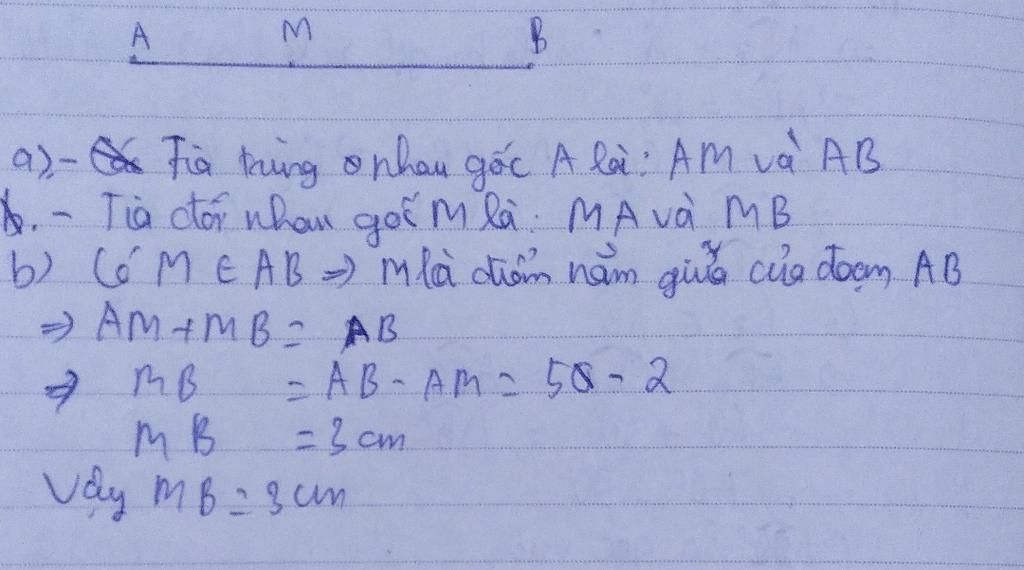 A M B
a) - Tia trùng nhau gốc A là: AM và AB
- Tia đối nhau gốc M là: MA và MB
b) Có M ∈ AB => M là điểm nằm giữa của đoạn AB
=> AM + MB = AB
=> MB = AB - AM = 5 - 2
MB = 3 cm
Vậy MB = 3 cm